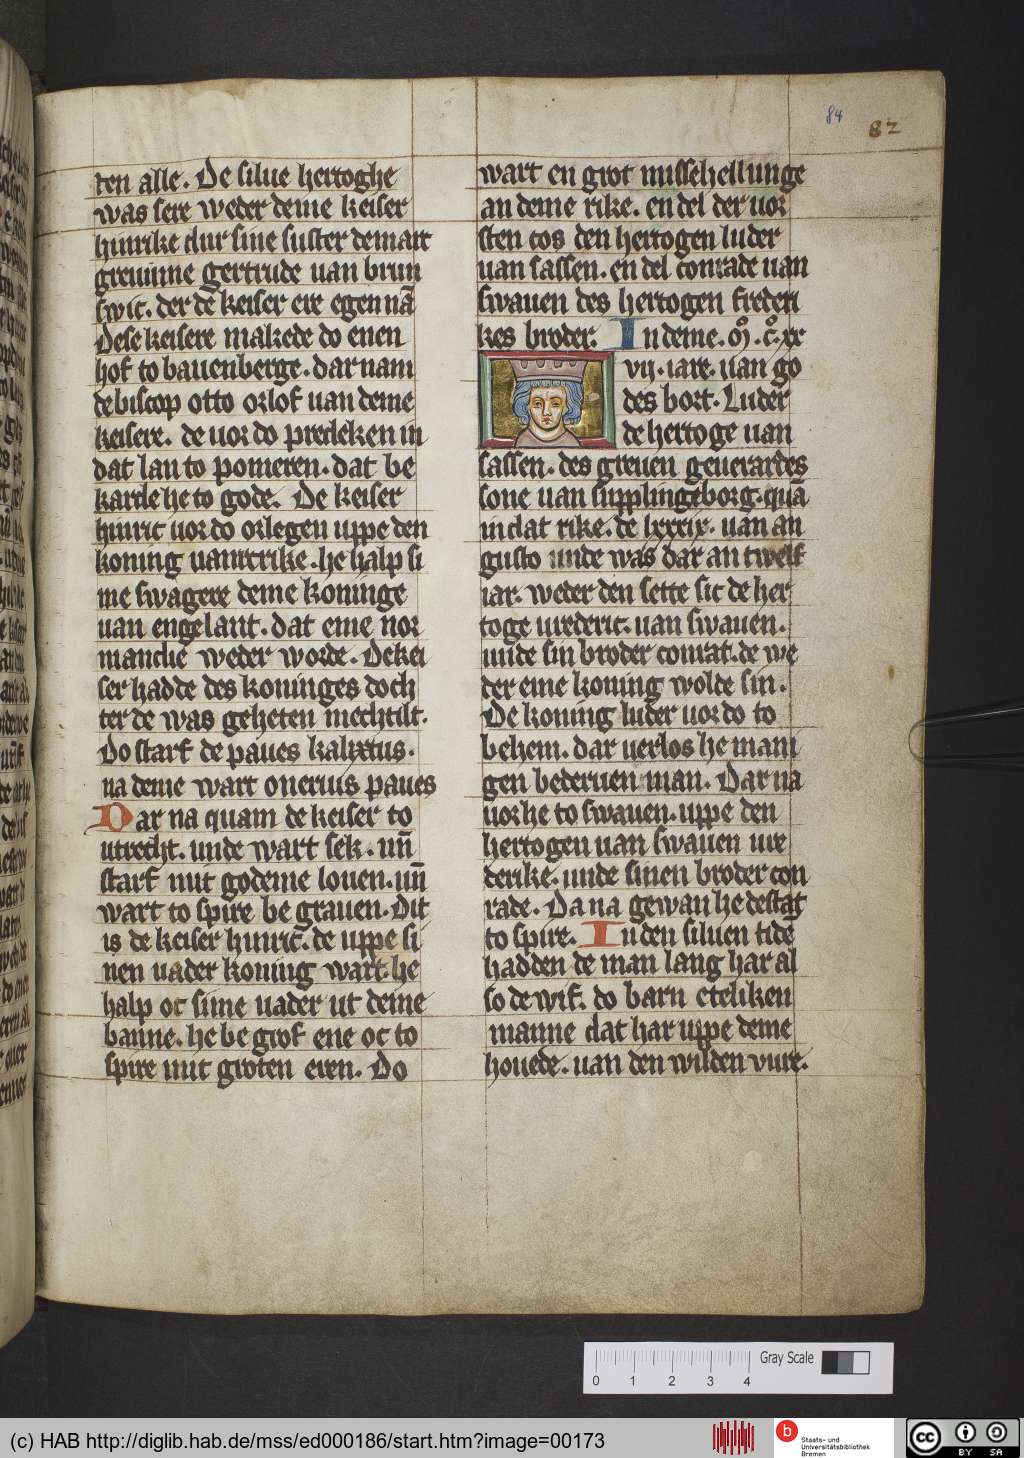 84
82
ren alle. De silue hertoghe
was sere weder deme keiser
hinrike dur sine suster de mart
greuinne gertrude uan brun
swic. der de keiser ere egen nā
Dese keisere makede do enen
hof to bauenberge. dar nam
de biscop otto orlof uan deme
keisere. de uor do predeken in
dat lant to pomeren. dat be
karde he to gode. De keiser
hinric uor do orlegen uppe den
koning uan vrcrike. he halp si
me swagere deme koninge
uan engelant. dat eme nor
mandie weder worde. De kei
ser hadde des koninges doch
ter de was geheten mechtilt.
Do starf de paues kalixtus.
na deme wart onerius paues
Dar na quam de keiser to
utrecht. unde wart sek. un̄
starf mit godeme louen. un̄
wart to spire be grauen. Dit
is de keiser hinric. de uppe si
nen uader koning wart. he
halp oc sime uader ut deme
banne. he be grof ene oc to
spire mit groten eren. Do
wart en grot missehellunge
an deme rike. en del der uor
sten cos den hertogen luder
uan sassen. en del conrade uan
swauen des hertogen frederi
kes broder. In deme. M̊. c̊. xx
vij. iare. uan go
des bort. Luder
de hertoge uan
sassen. des greuen geuerardes
sone uan supplingeborg. quā
in dat rike. de lxxxix. uan au
gusto unde was dar an twelf
iar. weder den sette sic de her
toge vrederic. uan swauen.
unde sin broder conrat. de we
der eme koning wolde sin.
De koning luder uor do to
behem. dar uerlos he mani
gen bederuen man. Dar na
uor he to swauen. uppe den
hertogen uan swauen vre
derike. unde sinen broder con
rade. Da na gewan he de stat
to spire. In den siluen tidē
hadden de man lang har al
so de wif. do barn eteliken
manne dat har uppe deme
houede. uan den wilden vure.
Gray Scale
0 1 2 3 4
(c) HAB http://diglib.hab.de/mss/ed000186/start.htm?image=00173
b
Staats- und
Universitätsbibliothek
Bremen
cc
BY SA